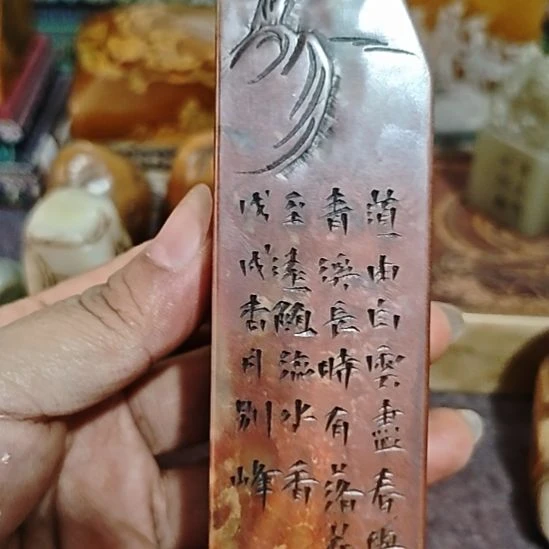 道由白雲盡春與
青溪長時有落花
至遠随流水香
戊戌杏月別峰